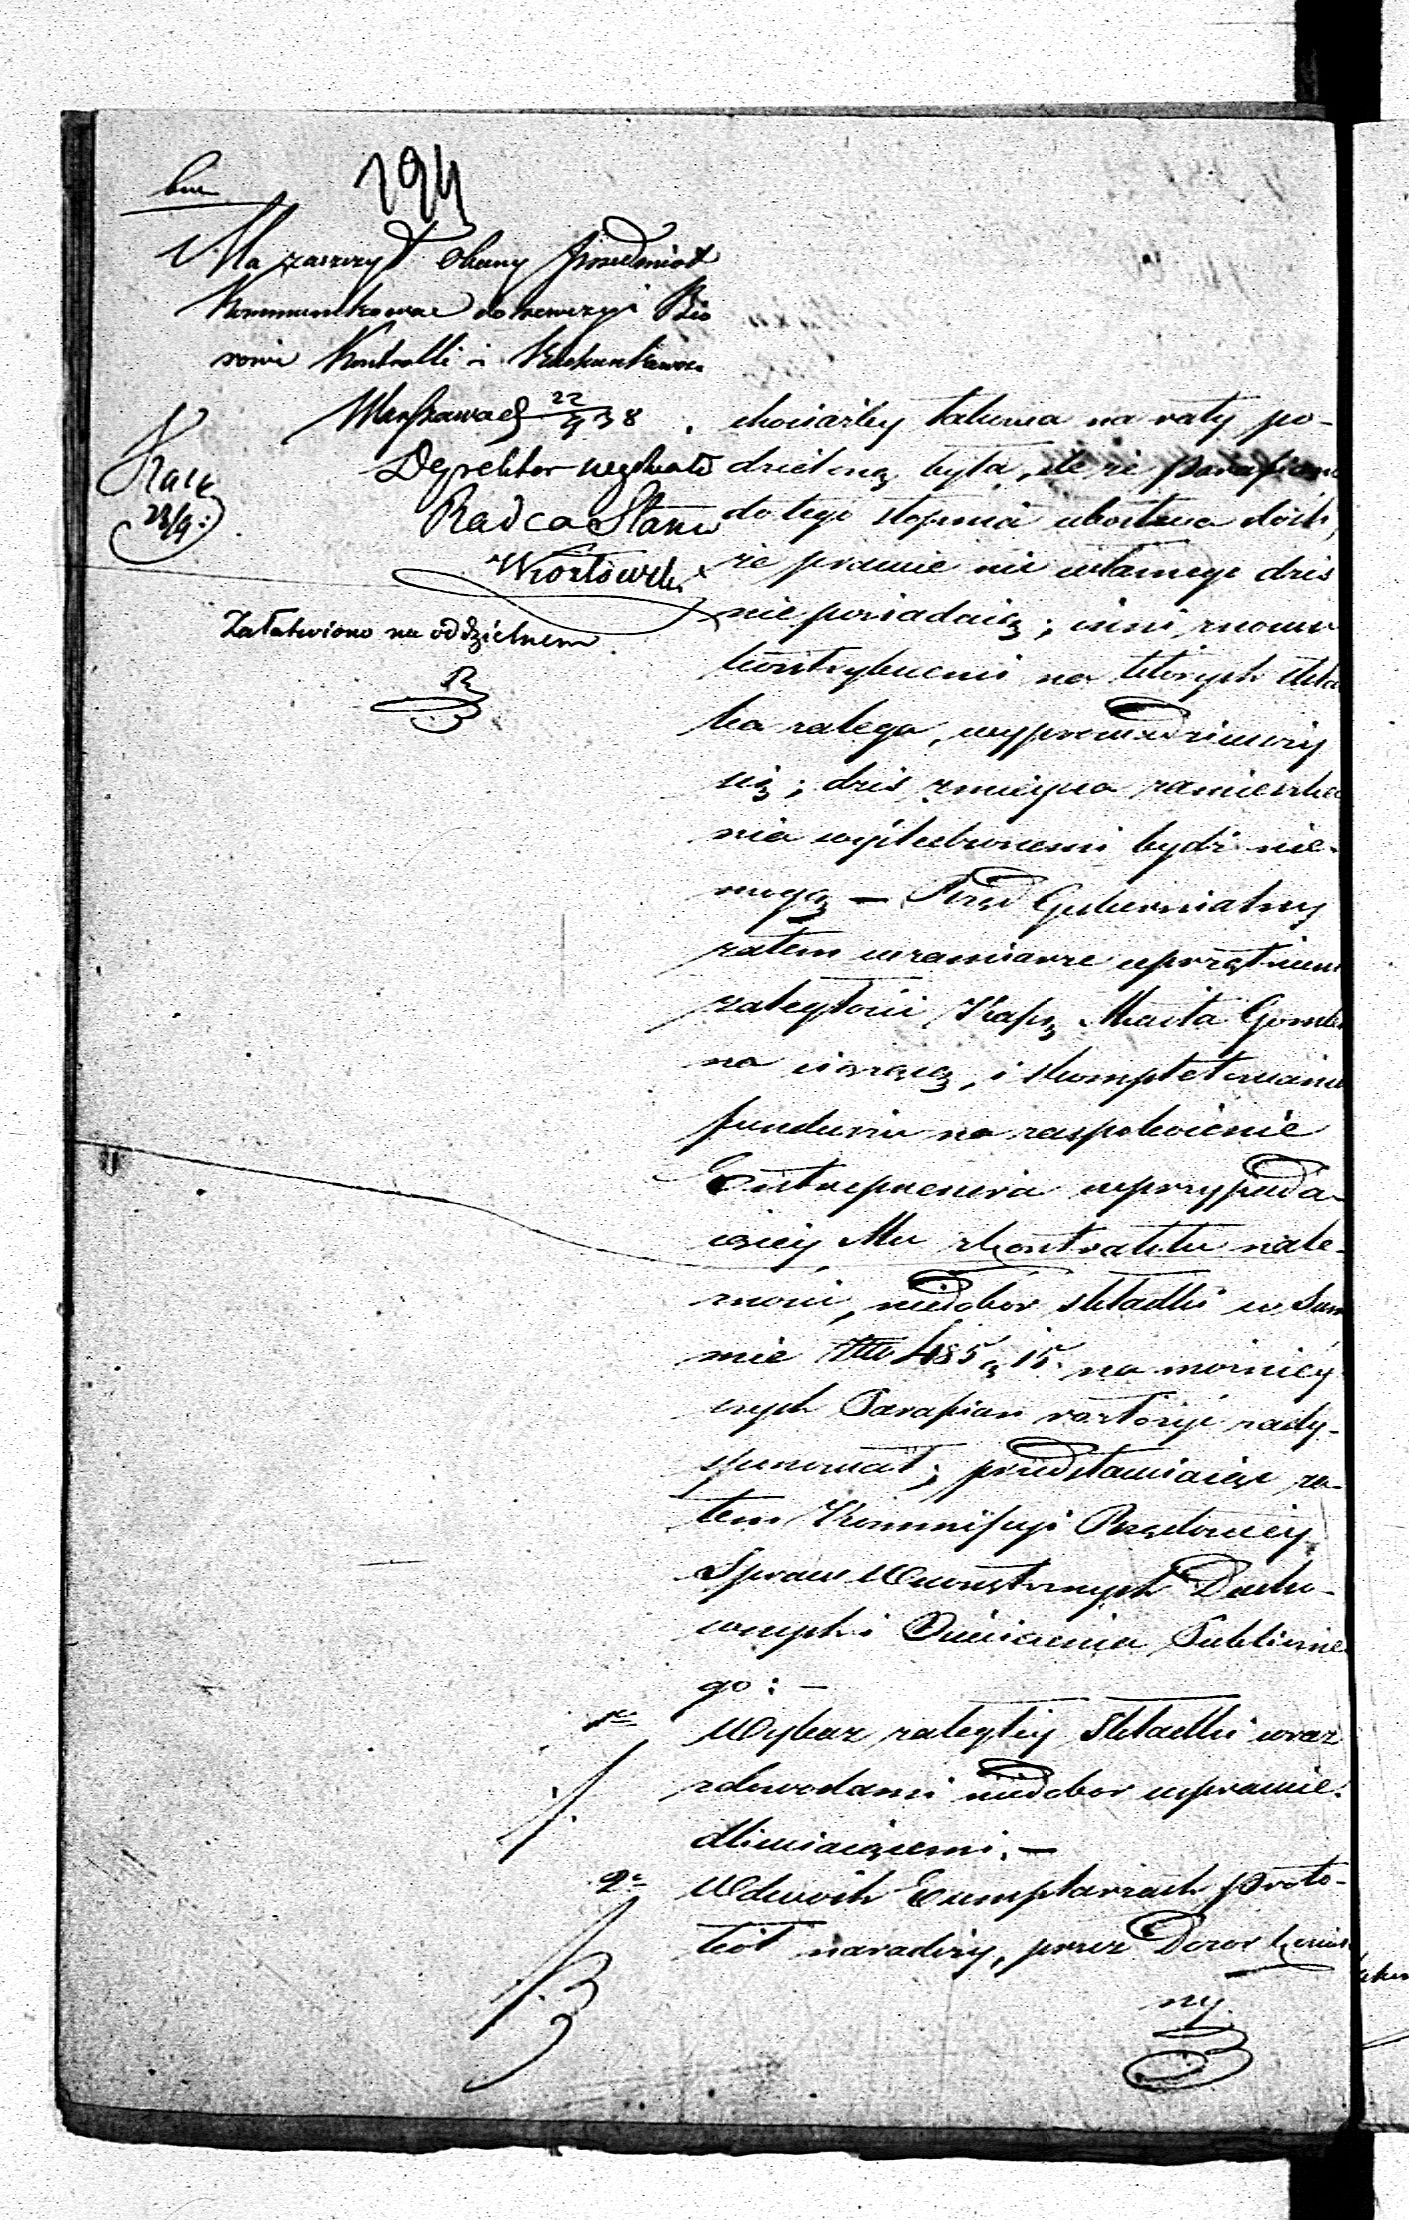 194
Ma zaszczyt obany przedmiot
Kommunikować do rewizyi Bió
rowi Kontrolli i
Warszawa d 22/9 38
Dyrektor wydziału
Radca Stanu
Kozłowski
22/9
Załatwiono na oddzielnem
chociażby takowa na raty po-
dzieloną była, ile że parafianie
do tego stopnia ubostwa doszli,
że prawie nic własnego dziś
nie posiadaią; inni znowu
kontrybuenci na których skła
ka zalega, wyprowadziwszy
się; dziś zmieysca zamieszka
nia wyśledzonemi bydź nie-
mogą — Rząd Gubernialny
zatem wzamiarze uprzątnienia
zaległości Kassę Miasta Gombi
na ciążącą, i skompletowania
funduszu na zaspokoienie
Entreprenera wprzypada-
iącey Mu zkontraktu nale-
żności, niedobor składki w Sum
mie 485 15. na możniey
szych Parafian rozłożyć zady-
sponował; przedstawiaiąc za-
tem Kommissyi Rządowey
Spraw Wewnętrznych Ducho-
wnych i Oświecenia Publiczne
go: —
1o Wykaz zaległey Składki wraz
zdowodami niedobor usprawie-
dliwiaiącemi. —
2o Wdwóch Exemplarzach Proto-
kół naradczy, przez Dozor Kościel
ny